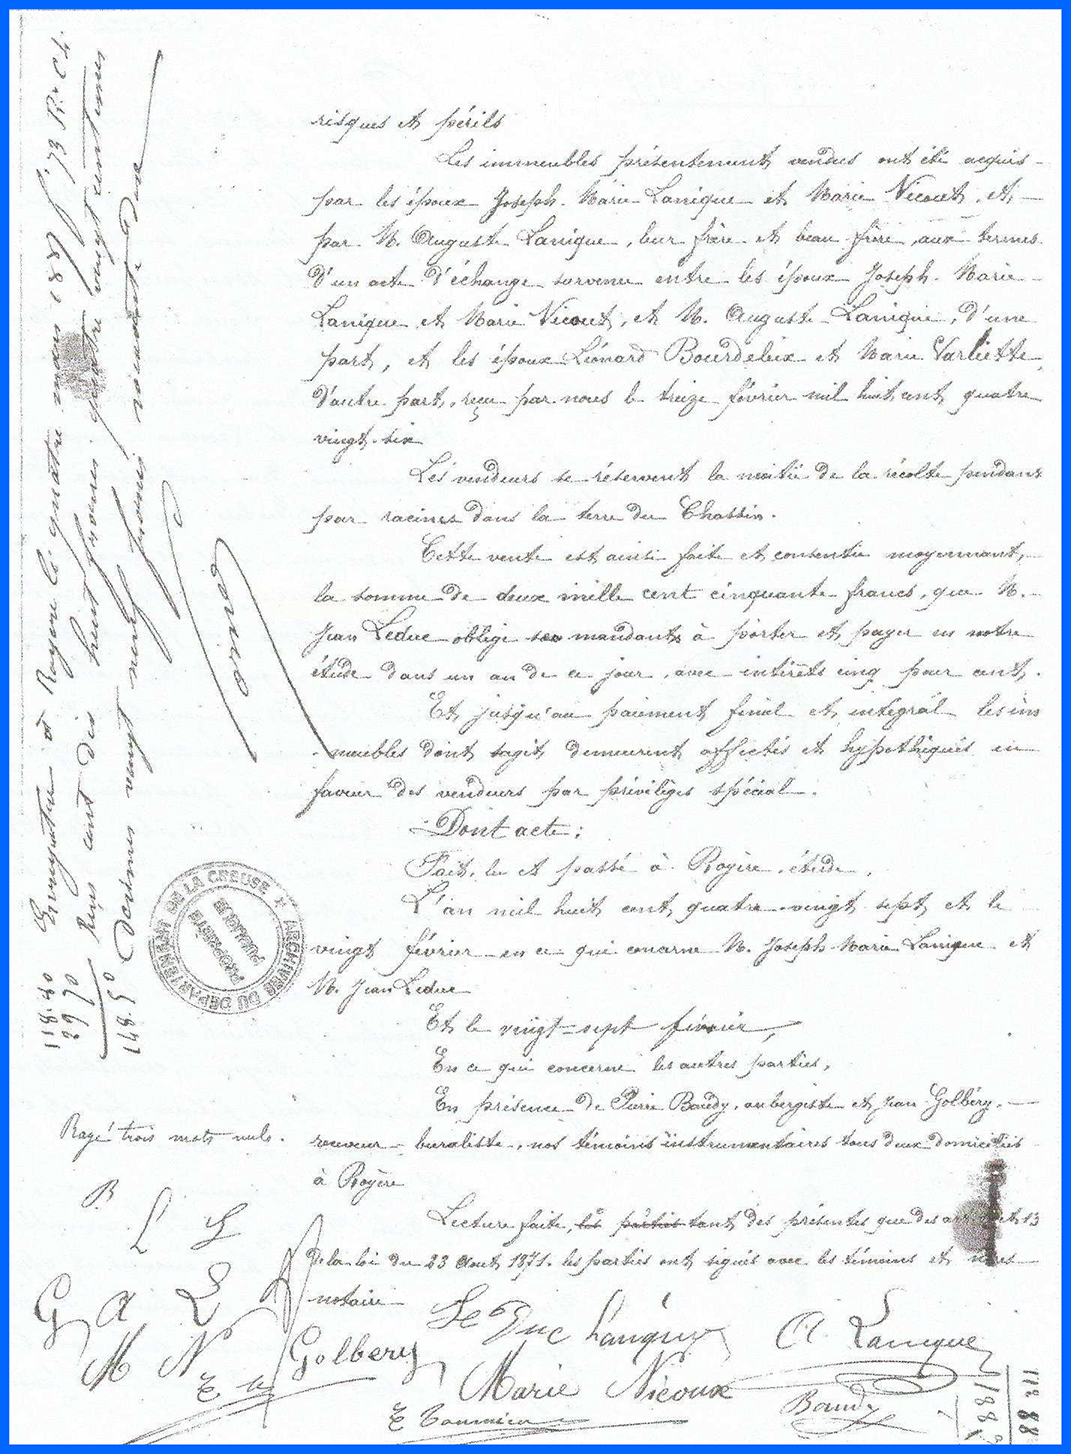 risques et périls
Les immeubles présentement vendus ont été acquis
par les époux Joseph Marie Lanique et Marie Nicout, et
par M. Auguste Lanique, leur frère et beau-frère, aux termes
d'un acte d'échange survenu entre les époux Joseph-Marie
Lanique et Marie Nicout, et M. Auguste Lanique, d'une
part, et les époux Léonard Bourdeleix et Marie Varliette,
d'autre part, reçu par nous le treize février mil huit cent quatre
vingt-six
Les vendeurs se réservent la moitié de la récolte pendant
par racines dans la terre du Chassin.
Cette vente est ainsi faite et consentie moyennant,
la somme de deux mille cent cinquante francs, que M.
Jean Leduc oblige ses mandants à porter et payer en notre
étude dans un an de ce jour, avec intérêts cinq pour cent.
Et jusqu'au paiement final et intégral les im
meubles dont sagit demeurent affectés et hypothéqués en
faveur des vendeurs par privilèges spécial.
Dont acte:
Fait, lu et passé à Royère, étude,
L'an mil huit cent quatre-vingt sept et le
vingt février en ce qui concerne M. Joseph Marie Lanique et
M. Jean Leduc
Et le vingt-sept février,
En ce qui concerne les autres parties,
En présence de Pierre Baudy, aubergiste et Jean Golbéry,
receveur-buraliste, nos témoins instrumentaires tous deux domiciliés
à Royère
Lecture faite, les parties tant des présentes que des et 13
de la loi du 23 Aout 1871, les parties ont signés avec les témoins et nous
notaire
Le Duc Lanique A. Lanique
Golbery Marie Nicoux Baudy
Rayé trois mots nuls.
B.
L L
G A L
M N
Enregistré à Royère le quatre mars 188 f° 73 R° C 4.
Reçu cent dix huit francs quatre vingt centimes
Decimes vingt neuf francs soixante dix
ARCHIVES DU DÉPARTEMENT DE LA CREUSE
PROPRIÉTÉ PUBLIQUE